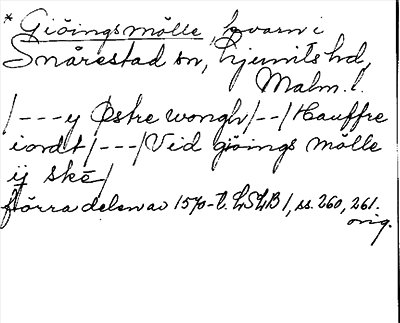 * Giöingsmölle, kvarn i
Snårestad sn, Ljunits hd,
Malm. l.
/---y Østre wongh/--/Hauffre
iordt/---/Vid giöings mölle
ij ske/
förra delen av 1570-t. LSLB 1, ss. 260, 261.
orig.